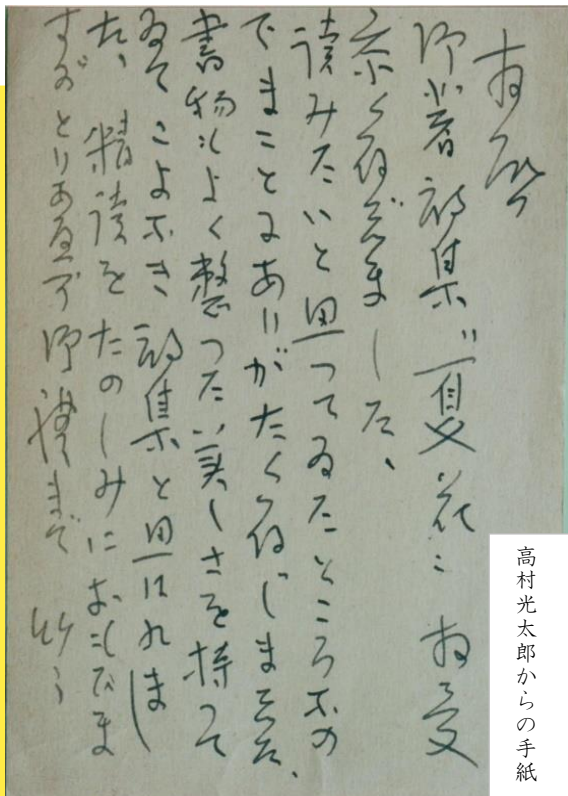 拝啓
御著詩集“夏花” 拝受
忝く存じました、
読みたいと思つてゐたところなの
でまことにありがたく存じました、
書物もよく整つた美しさを持つて
ゐてこよなき詩集と思はれまし
た、精読をたのしみにおもひま
すがとりあへず御礼まで 艸々
高村光太郎からの手紙